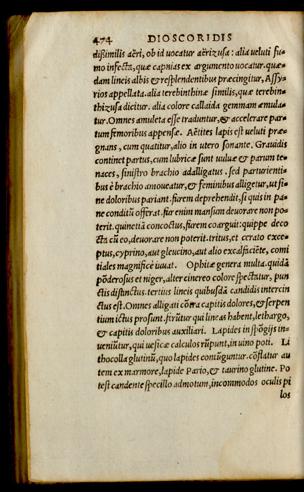 474 DIOSCORIDIS
dißimilis aëri, ob id uocatur aërizusa: alia ueluti fu-
mo infecta, quæ capnias ex argumento uocatur. quæ-
dam lineis albis & resplendentibus præcingitur, Assy-
rios appellata. alia terebinthinæ similis, quæ terebin-
thizusa dicitur. alia colore callaida gemmam æmula-
tur. Omnes amuleta esse traduntur, & accelerare par-
tum femoribus appensæ. Aëtites lapis est ueluti præ-
gnans, cum quatitur, alio in utero sonante. Grauidis
continet partus, cum lubricæ sunt uuluæ & parum te-
naces, sinistro brachio adalligatus. sed parturienti-
bus è brachio amoueatur, & feminibus alligetur, ut si-
ne doloribus pariant. furem deprehendit, si quis in pa-
ne conditũ offerat. fur enim mansum deuorare non po-
terit. quinetiã concoctus, furem coarguit: quippe deco
cta cũ eo, deuorare non poterit. tritus, et cerato exce-
ptus, cyprino, aut gleucino, aut alio excalfaciẽte, comi
tiales magnificè iuuat. Ophitæ genera multa. quidã
põderosus et niger, alter cinereo colore spectatur, pun
ctis distinctus. tertius lineis quibusdã candidis intercin
ctus est. Omnes alligati cõtra capitis dolores, & serpen
tium ictus prosunt. firũtur qui lineas habent, lethargo,
& capitis doloribus auxiliari. Lapides in spõgijs in-
ueniũtur, qui uesicæ calculos rũpunt, in uino poti. Li
thocolla glutinũ, quo lapides contũguntur. cõflatur au
tem ex marmore, lapide Pario, & taurino glutine. Po
test candente specillo admotum, incommodos oculis pi
los